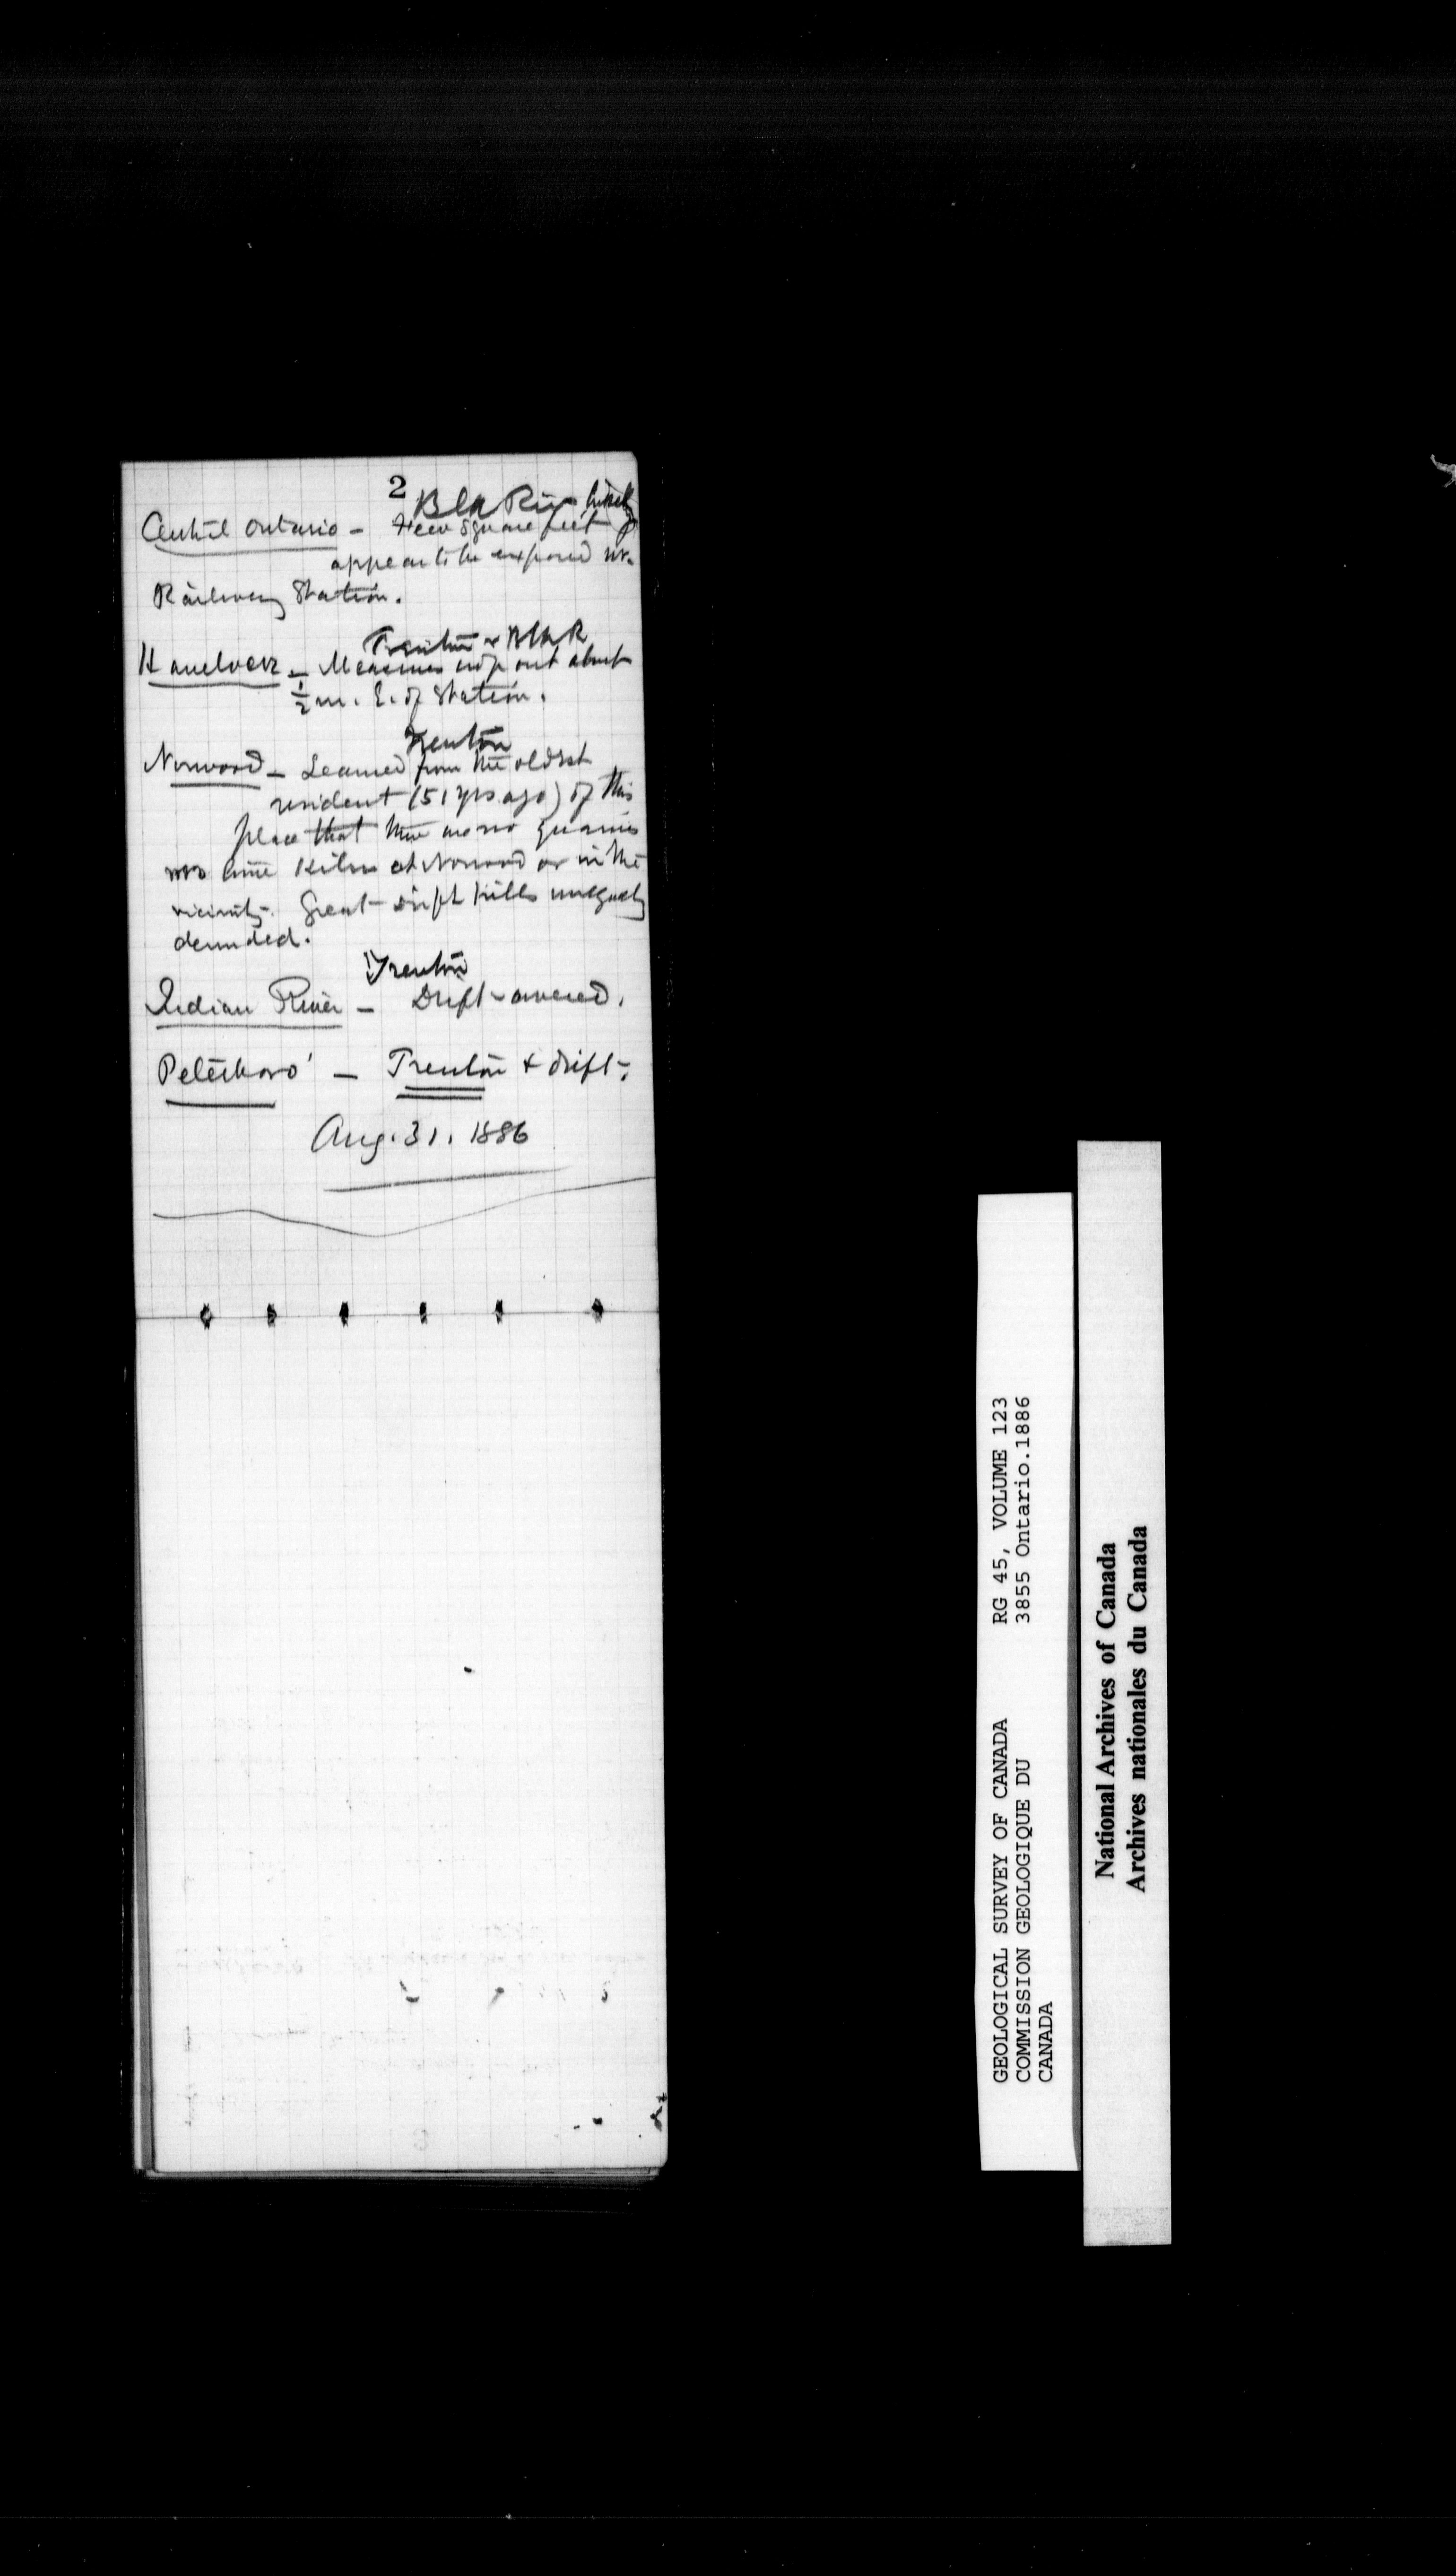 2
Blk Riv likely
Central Ontario - Few square feet
appear to be exposed nr.
Railway Station.
Trenton & Blk R
Havelock - Measures crop out about
1/2 m. E. of Station.
Trenton
Norwood - Learned from the oldest
resident (51 yrs ago) of this
place that there are no quarries
nor lime Kilns at Norwood or in the
vicinity. Great drift hills unequally
denuded.
Trenton
Indian River - Drift-covered.
Peterboro' - Trenton & drift.
Aug. 31. 1886
GEOLOGICAL SURVEY OF CANADA RG 45, VOLUME 123
COMMISSION GEOLOGIQUE DU 3855 Ontario.1886
CANADA
National Archives of Canada
Archives nationales du Canada